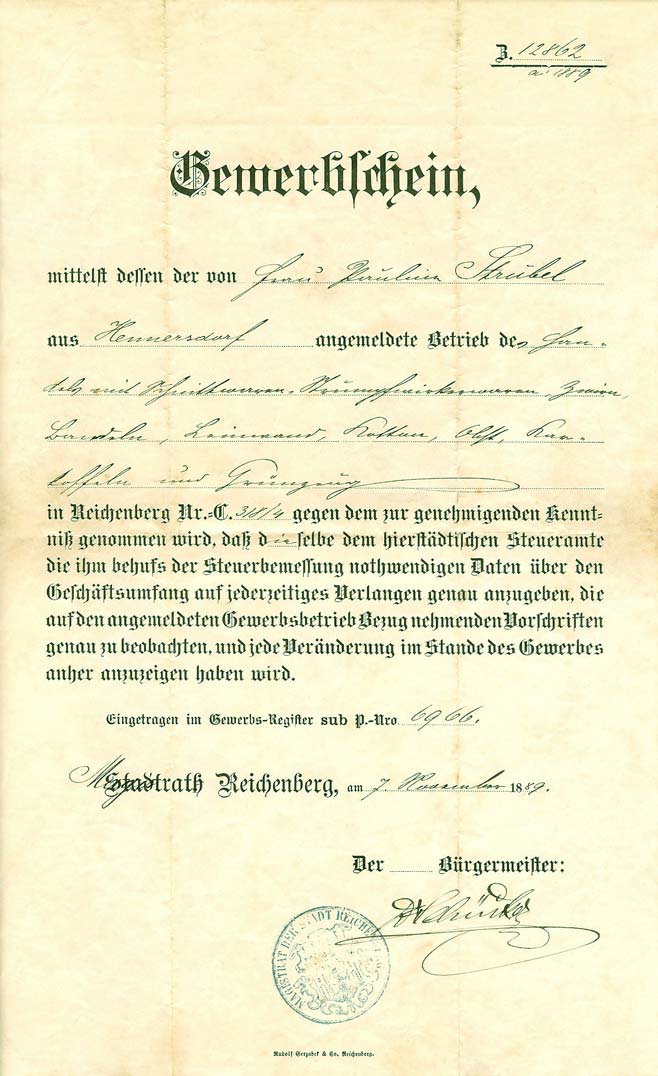 Z. 12862
ai 1889
Gewerbschein,
mittelst dessen der von Frau Pauline Strubel
aus Hennersdorf angemeldete Betrieb des Han-
dels mit Schnittwaren, Strumpfwirkerwaren, Zwirn,
Bandeln, Leinwand, Kotton, Obst, Kar-
toffeln und Grünzeug
in Reichenberg Nr.-C. 318/4 gegen dem zur genehmigenden Kennt-
niß genommen wird, daß dieselbe dem hierstädtischen Steueramte
die ihm behufs der Steuerbemessung nothwendigen Daten über den
Geschäftsumfang auf jederzeitiges Verlangen genau anzugeben, die
auf den angemeldeten Gewerbsbetrieb Bezug nehmenden Vorschriften
genau zu beobachten, und jede Veränderung im Stande des Gewerbes
anher anzuzeigen haben wird.
Eingetragen im Gewerbs-Register sub P.-Nro 6966.
Stadtrath Reichenberg, am 7. November 1889.
Der Bürgermeister:
MAGISTRAT DER STADT REICHENBERG
Rudolf Gerzabek & Co. Reichenberg.